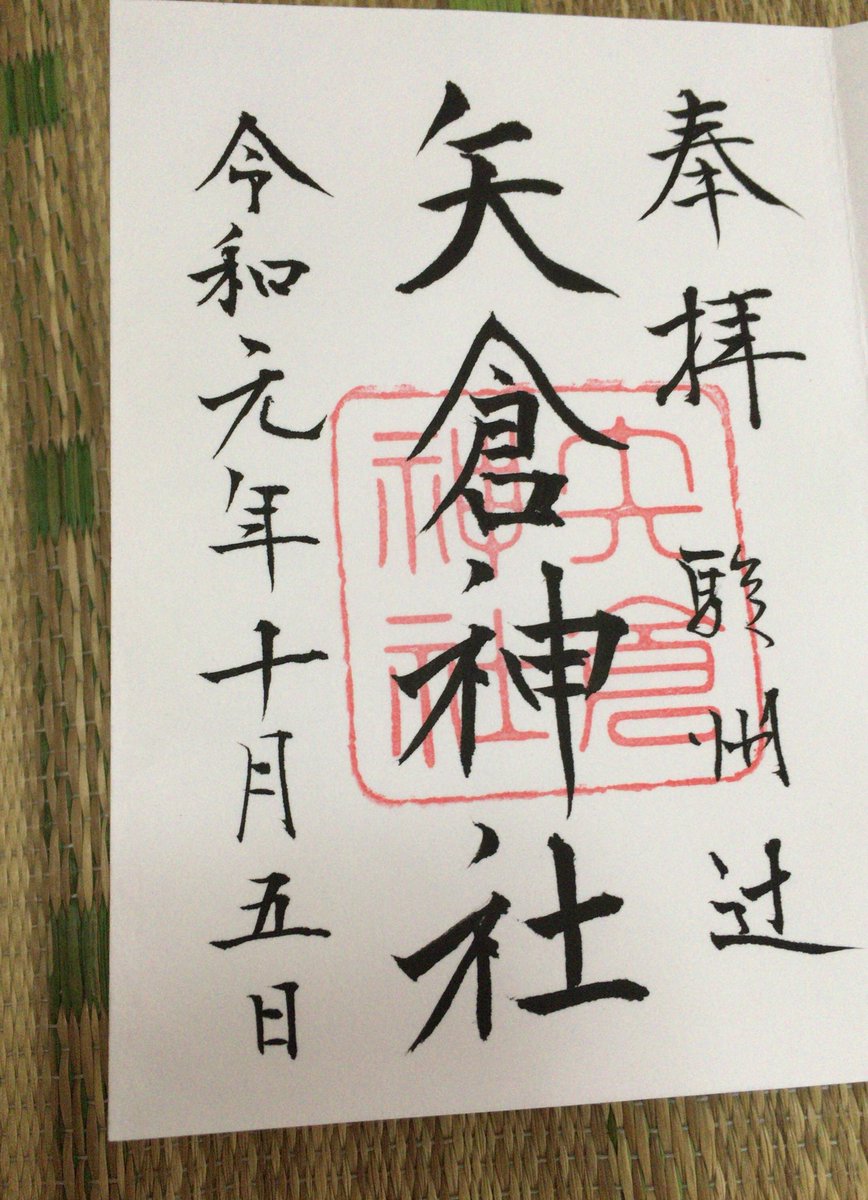 奉拝
駿州辻
矢倉神社
矢倉神社
令和元年十月五日